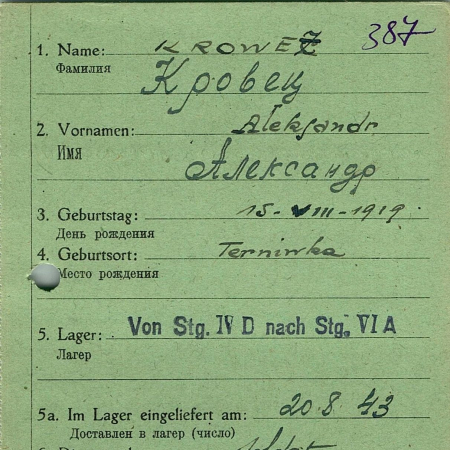 387
1. Name: KROWEZ
Фамилия Кровец
2. Vornamen: Aleksandr
Имя
Александр
3. Geburtstag: 15-VIII-1919
День рождения
4. Geburtsort: Terniwka
Место рождения
5. Lager: Von Stg. IV D nach Stg. VI A
Лагер
5a. Im Lager eingeliefert am: 20.8.43
Доставлен в лагер (число)